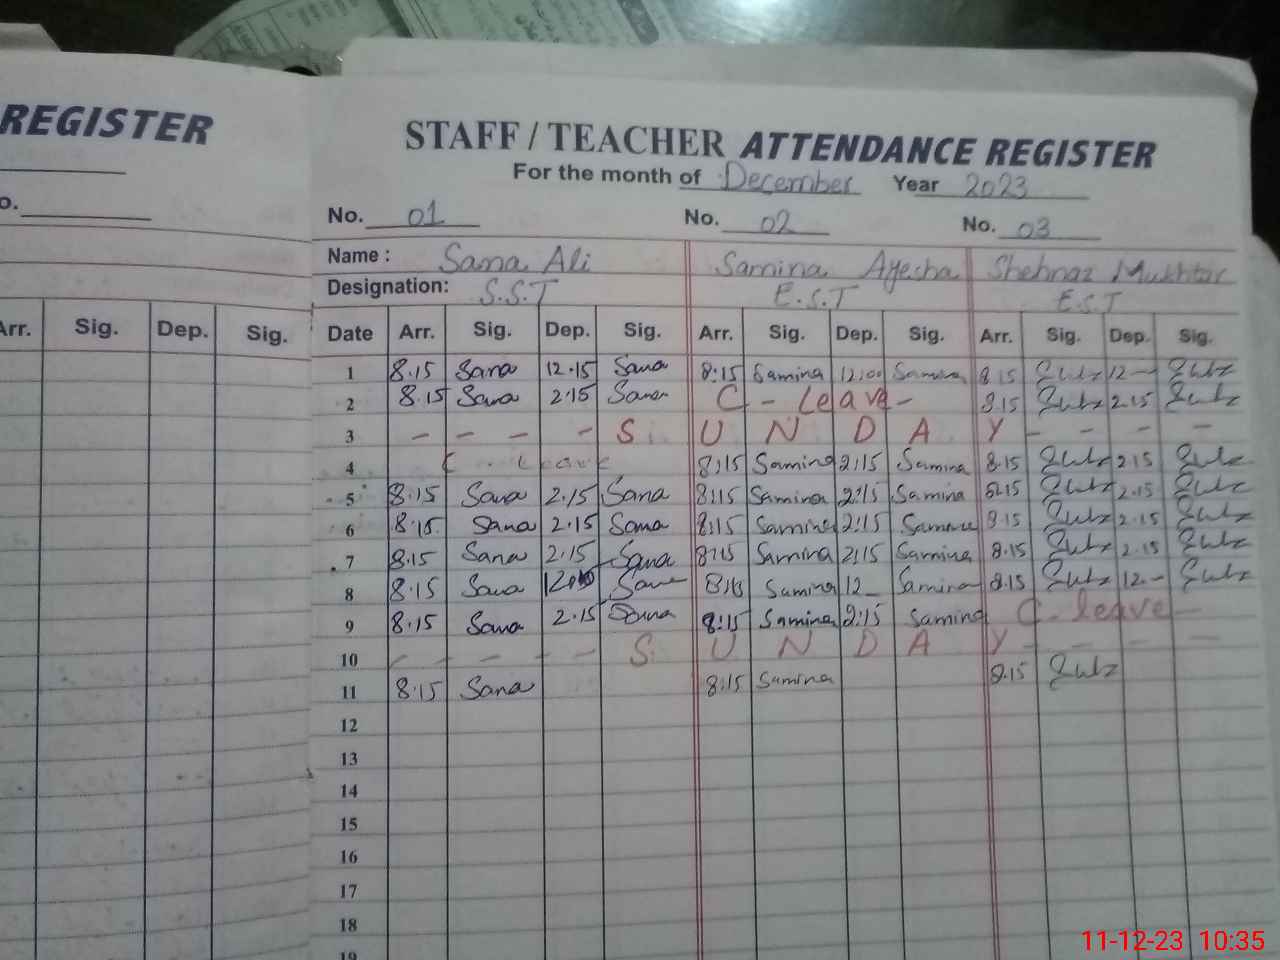 REGISTER
STAFF / TEACHER ATTENDANCE REGISTER
For the month of December Year 2023
o.
No. 01 No. 02 No. 03
Name : Sana Ali Samina Ayesha Shehnaz Mukhtar
Designation: S.S.T E.S.T E.S.T
Arr. Sig. Dep. Sig. Date Arr. Sig. Dep. Sig. Arr. Sig. Dep. Sig. Arr. Sig. Dep. Sig.
1 8.15 Sana 12.15 Sana 8:15 Samina 12:00 Samina 8.15 12
2 8.15 Sana 2.15 Sana C - Leave - 8.15 2.15
3 - - - - S U N D A Y - - - -
4 C - Leave 8:15 Samina 2:15 Samina 8.15 2.15
5 8.15 Sana 2.15 Sana 8:15 Samina 2:15 Samina 8.15 2.15
6 8.15. Sana 2.15 Sana 8:15 Samina 2:15 Samina 8.15 2.15
7 8.15 Sana 2.15 Sana 8:15 Samina 2:15 Samina 8.15 2.15
8 8.15 Sana Sana Samina 12 Samina 8.15 12.-
9 8.15 Sana 2.15 Sana 8:15 Samina 2:15 Samina C - leave -
10 - - - - S U N D A Y - - - -
11 8.15 Sana 8:15 Samina 8.15
12
13
14
15
16
17
18
19
11-12-23 10:35